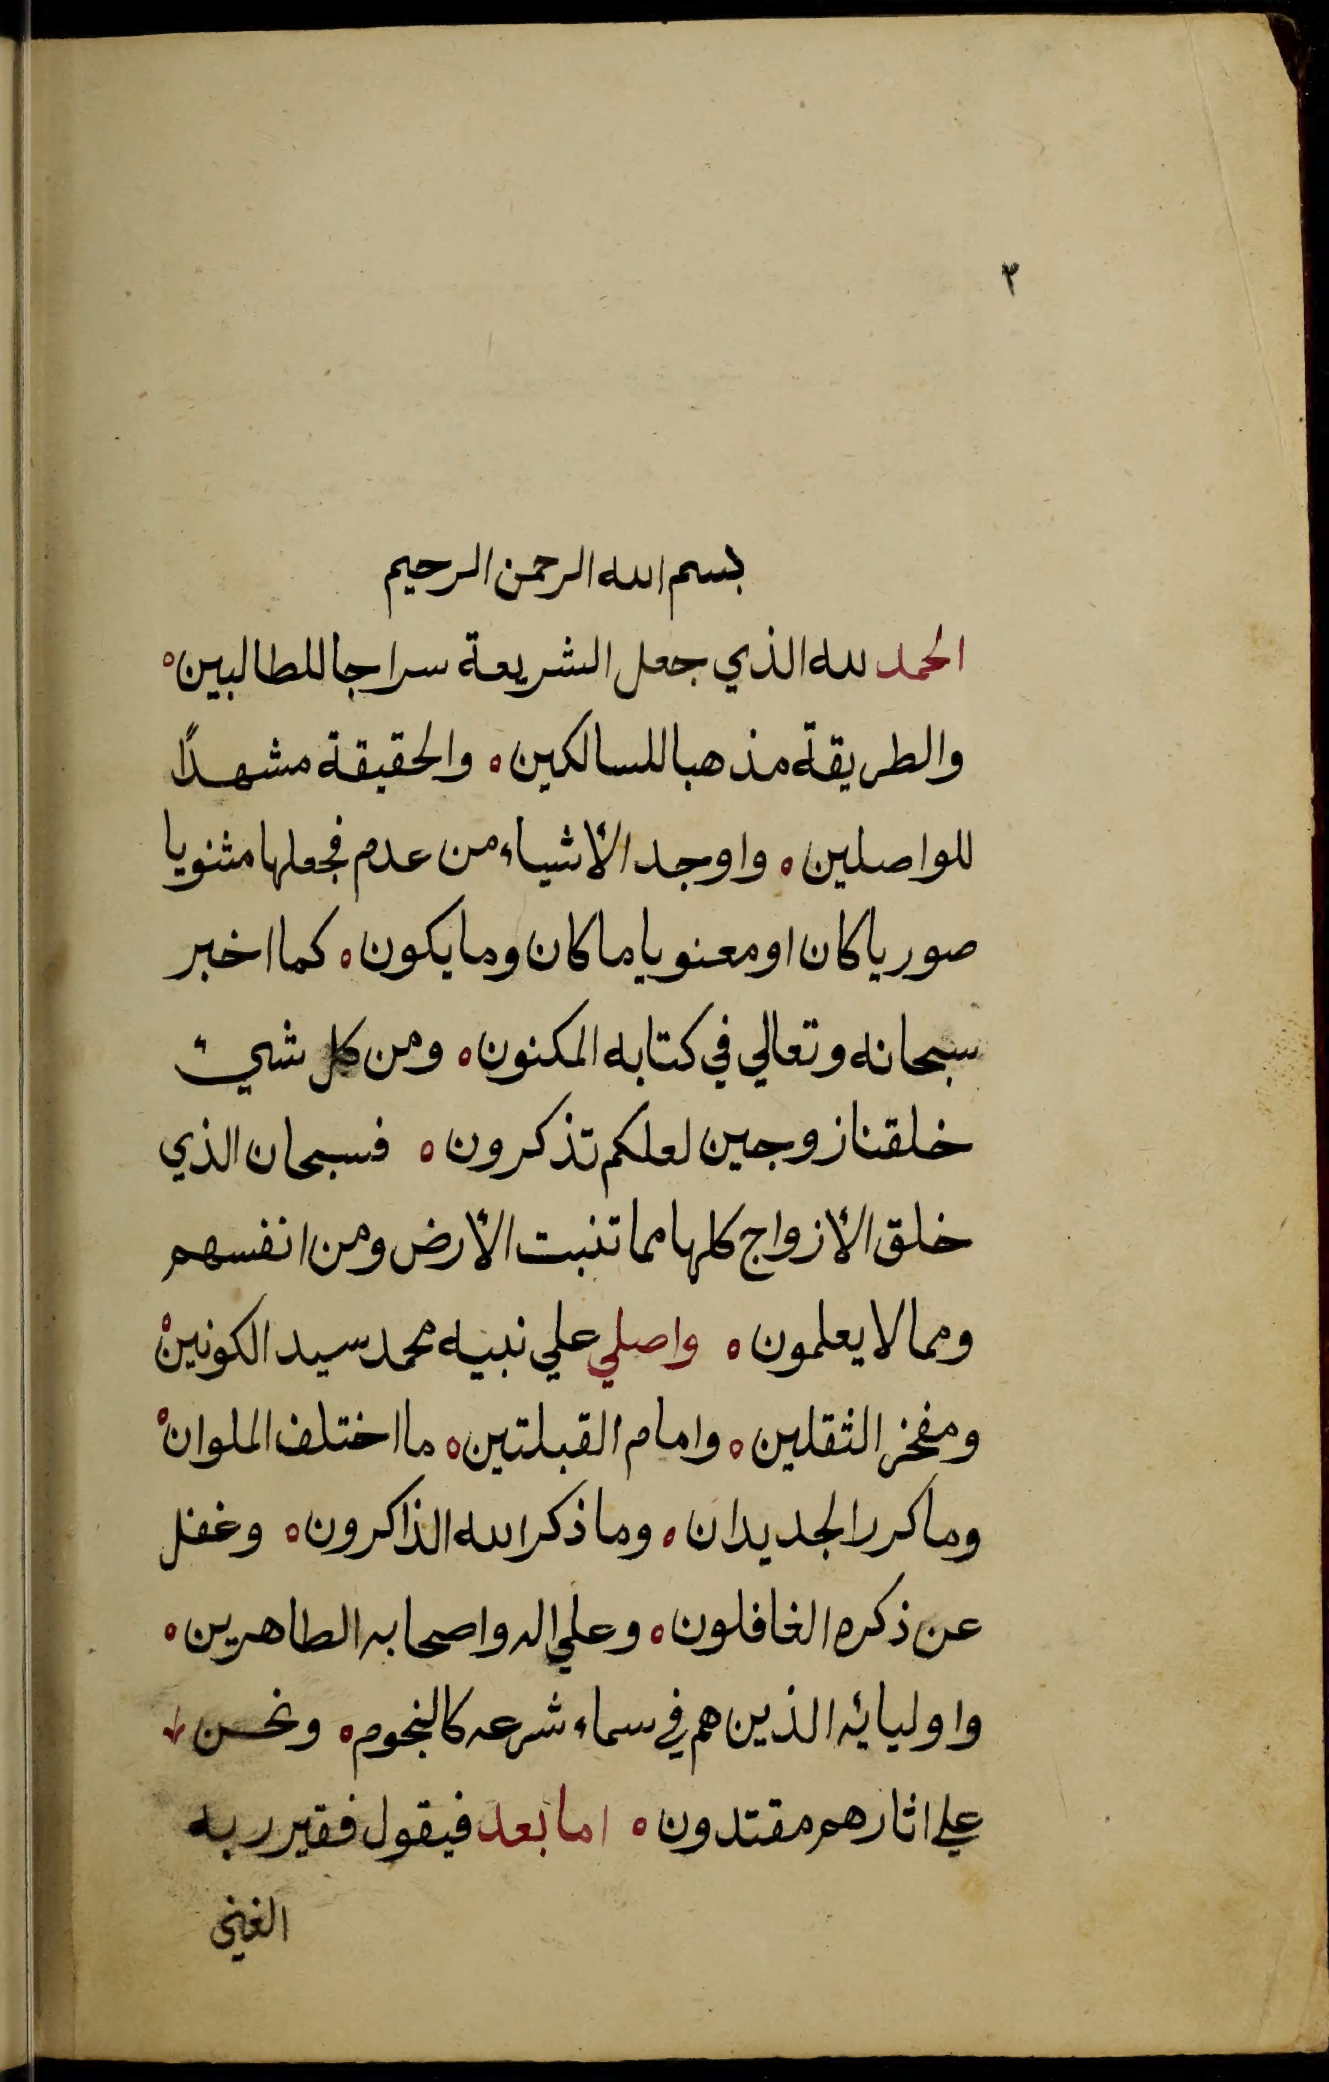 ٣
بسم الله الرحمن الرحيم
الحمد لله الذي جعل الشريعة سراجا للطالبين ه
والطريقة مذهبا للسالكين ه والحقيقة مشهدًا
للواصلين ه واوجد الأشياء من عدم فجعلها مثنويا
صوريا كان او معنويا ما كان وما يكون ه كما اخبر
سبحانه وتعالي في كتابه المكنون ه ومن كل شيء
خلقنا زوجين لعلكم تذكرون ه فسبحان الذي
خلق الأزواج كلها مما تنبت الأرض ومن انفسهم
ومما لا يعلمون ه واصلي علي نبيه محمد سيد الكونين ه
ومفخر الثقلين ه وامام القبلتين ه ما اختلف الملوان ه
وما كرر الجديدان ه وما ذكر الله الذاكرون ه وغفل
عن ذكره الغافلون ه وعلي اله واصحابه الطاهرين ه
واوليائه الذين هم في سماء شرعه كالنجوم ه ونحن
علي اثارهم مقتدون ه اما بعد فيقول فقير ربه
الغني